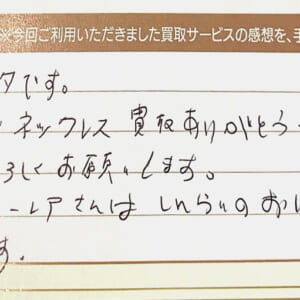 ※今回ご利用いただきました買取サービスの感想を、手
タです。
ネックレス 買取ありがとう
ろしくお願いします。
ーレアさんは しんらいのおけ
す。